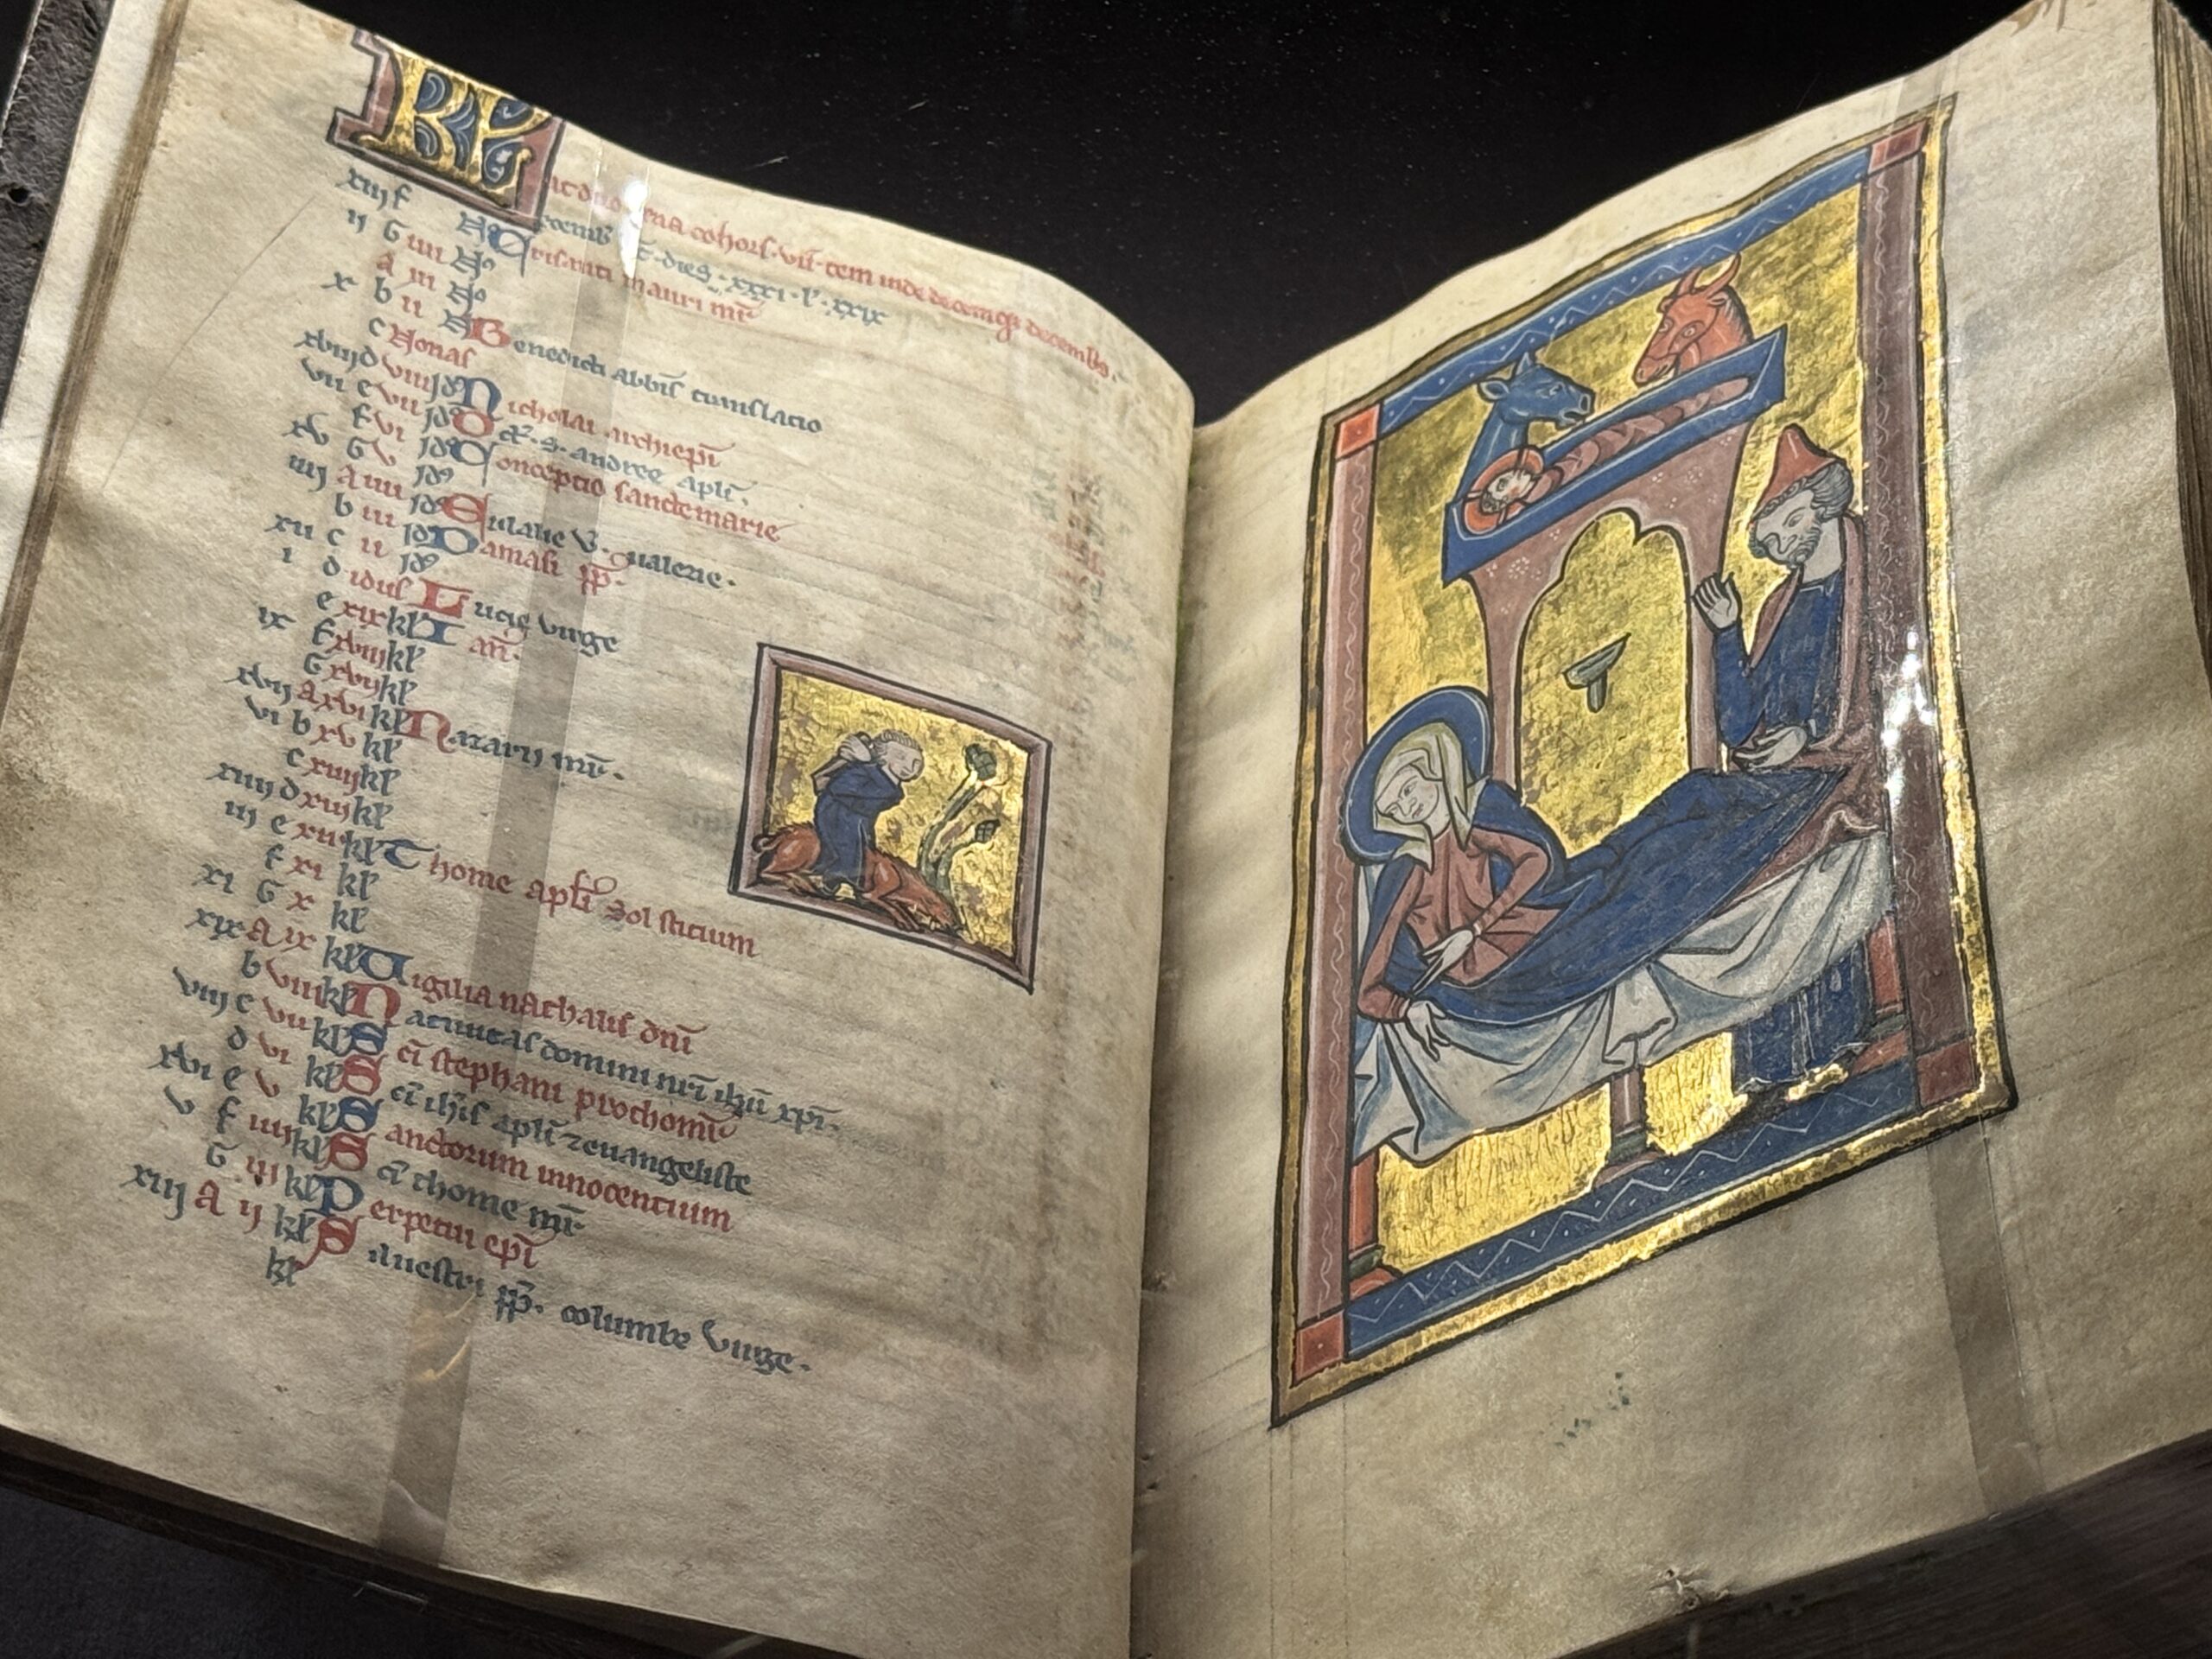 KL
cohors · vii · tem inde decemqz decembs.
xiij f decemb' dies · xxxi · l' · xxix
ij G iiii N' Crisanti mauri mr̄
A iii N'
x b ii N' Benedicti abb̄is translatio
c Nonas
xviij d viii Id' Nicholai archiep̄i
vii e vii Id' Oct'. S. andree apl̄i.
f vi Id' Conceptio sancte marie
xv G v Id'
iiij A iiii Id' Eulalie v. valerie.
b iii Id' Damasi pp̄.
xii c ii Id'
i d idus Lucie virge
e xix kl'
ix f xviij kl'
G xvij kl'
xvij A xvi kl' Nazarii mr̄.
vi b xv kl'
c xiiij kl'
xiiij d xiij kl'
iij e xii kl' Thome apl̄i Sol sticium
f xi kl'
xi G x kl'
xix A ix kl' Vigilia nathalis dn̄i
b viii kl' Natiuitas domini nr̄i ih̄u xp̄i.
viij c vii kl' Sc̄i stephani prothom̄r
d vi kl' Sc̄i ioh̄is apl̄i ⁊ euangeliste
xvi e v kl' Sanctorum innocentium
v f iiij kl' Sc̄i thome mr̄
G iij kl' Perpetui ep̄i
xiij A ij kl' Siluestri pp̄. columbe virge.
kl'